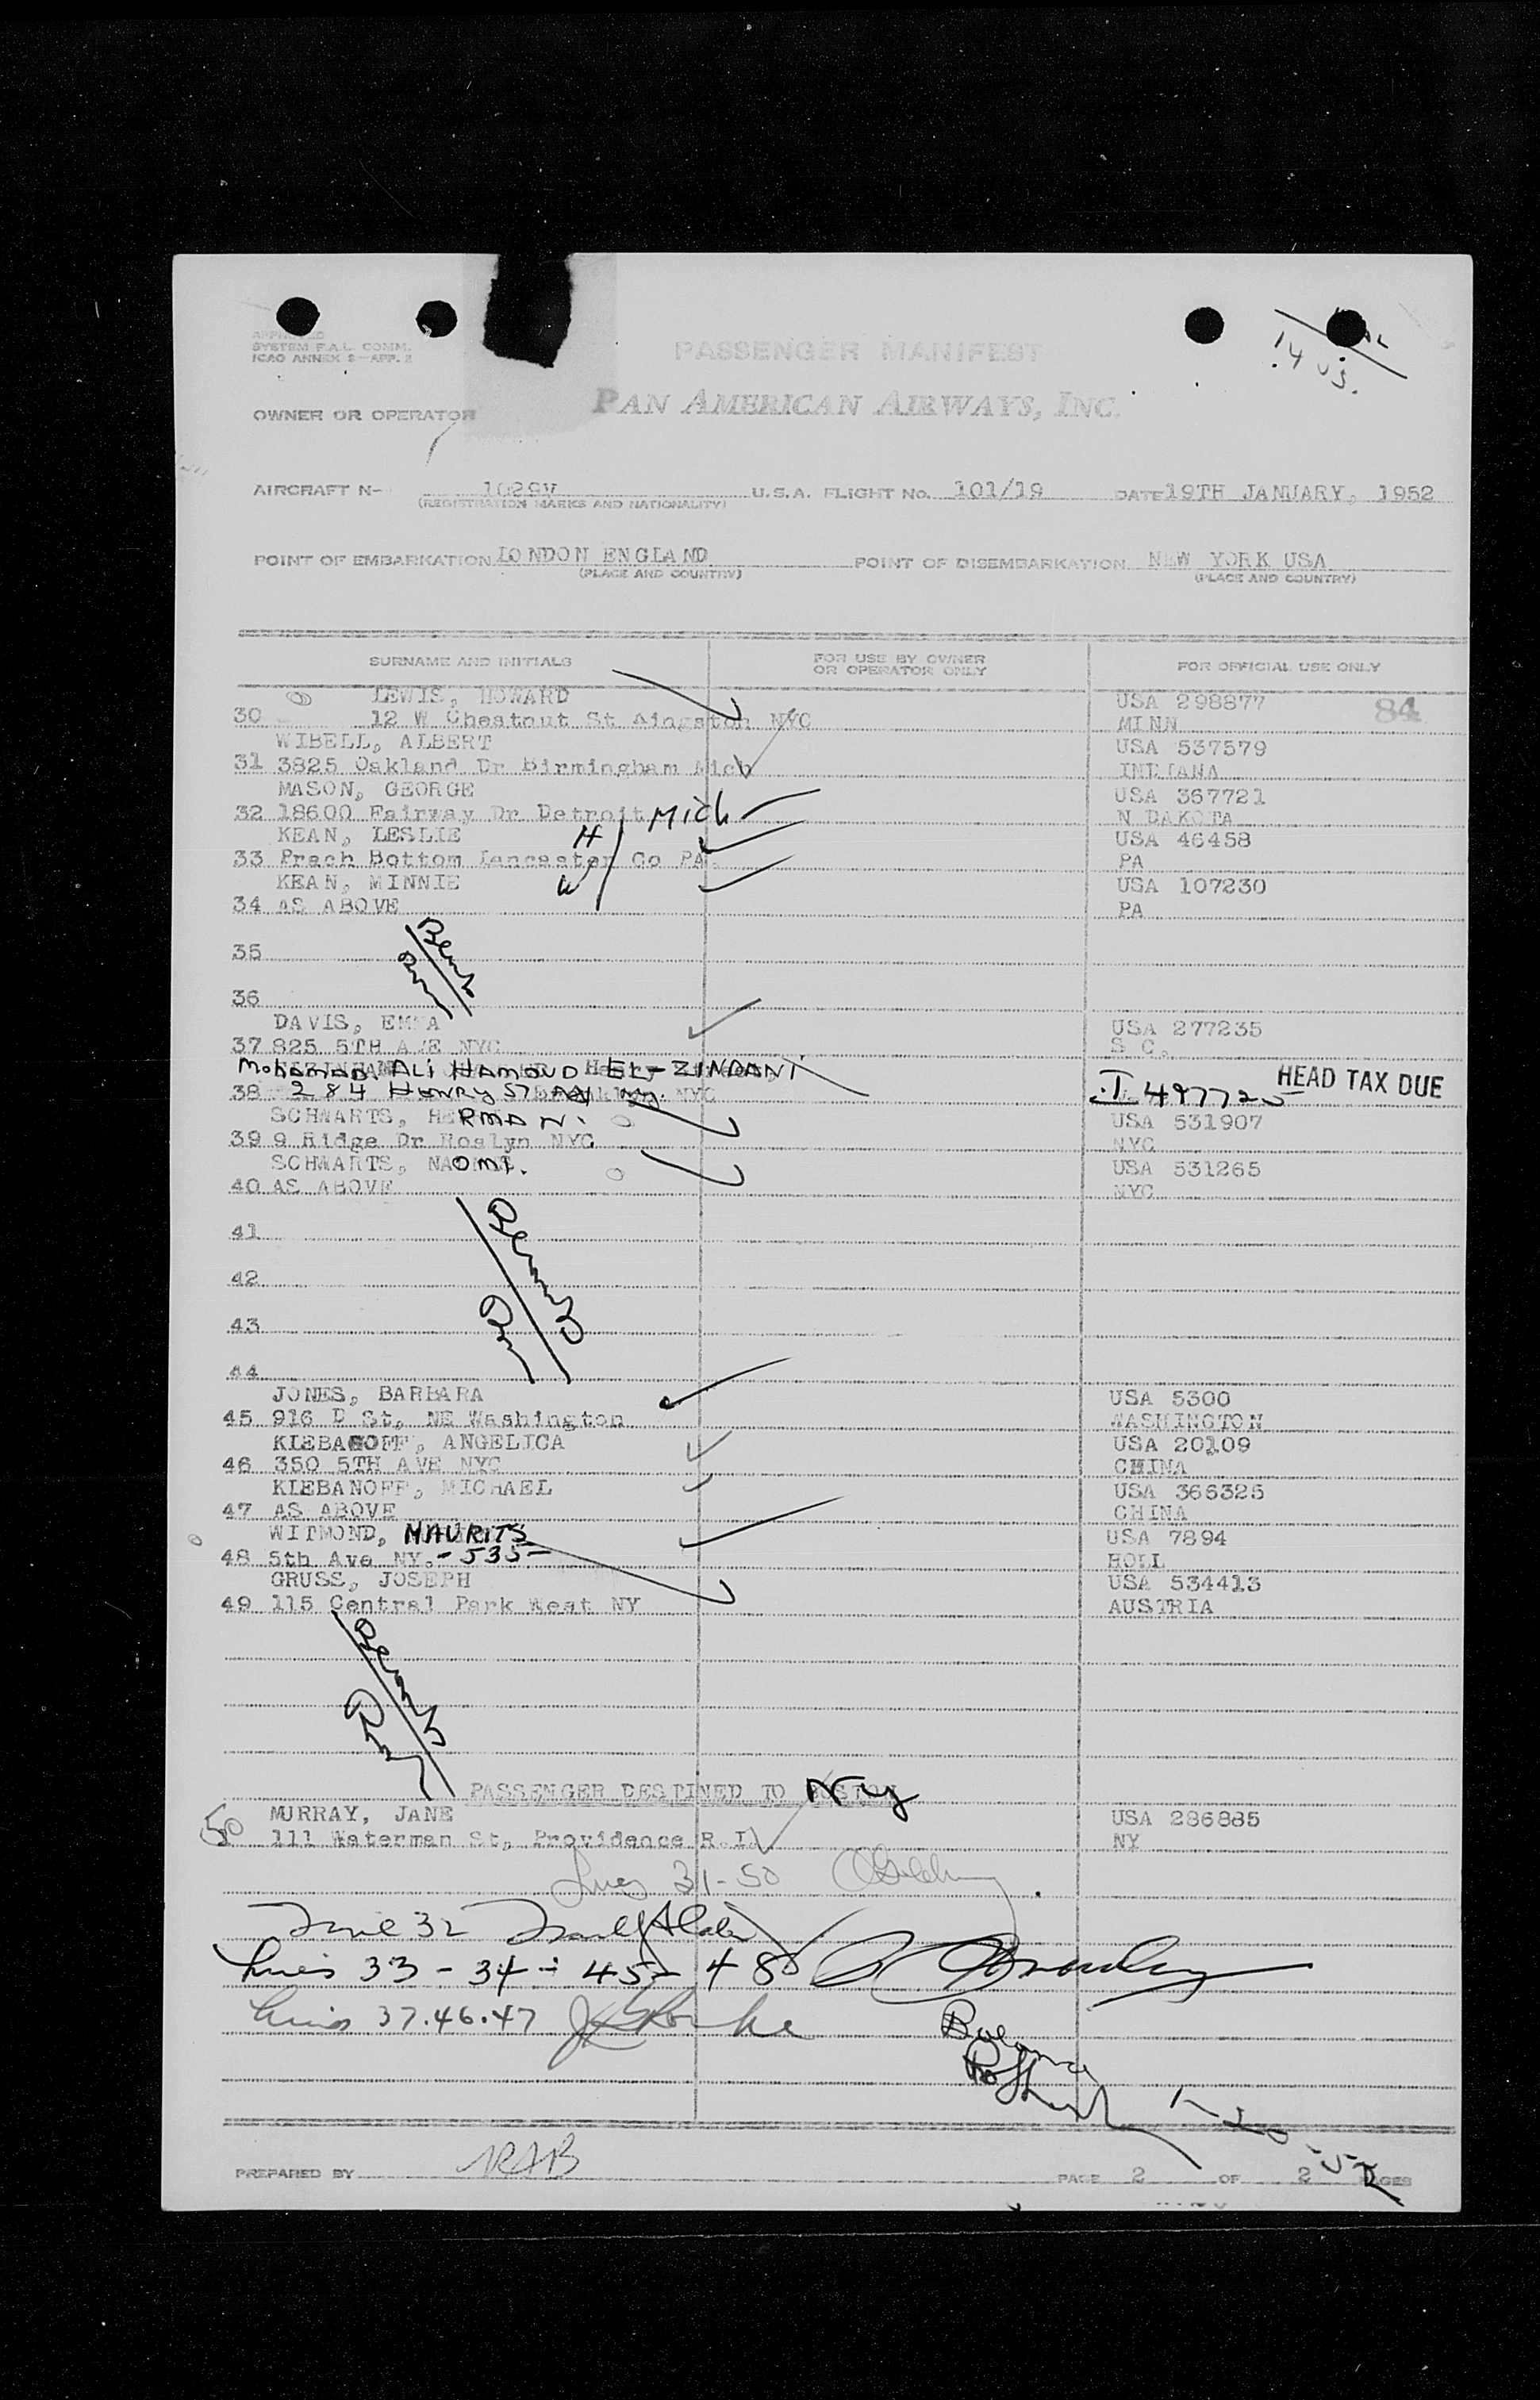 APPROVED
SYSTEM F.A.L. COMM.
ICAO ANNEX 9—APP. 2
PASSENGER MANIFEST
14 US.
OWNER OR OPERATOR PAN AMERICAN AIRWAYS, INC.
AIRCRAFT N- 1029V U.S.A. FLIGHT No. 101/19 DATE 19TH JANUARY, 1952
(REGISTRATION MARKS AND NATIONALITY)
POINT OF EMBARKATION LONDON ENGLAND POINT OF DISEMBARKATION NEW YORK USA
(PLACE AND COUNTRY) (PLACE AND COUNTRY)
SURNAME AND INITIALS FOR USE BY OWNER OR OPERATOR ONLY FOR OFFICIAL USE ONLY
LEWIS, HOWARD USA 298877 84
30 12 W Chestnut St Aingston NYC MINN
WIBELL, ALBERT USA 537579
31 3825 Oakland Dr Birmingham Mich INDIANA
MASON, GEORGE USA 367721
32 18600 Fairway Dr Detroit Mich N DAKOTA
KEAN, LESLIE H USA 46458
33 Prach Bottom Lancaster Co PA. PA
KEAN, MINNIE W USA 107230
34 AS ABOVE PA
35 Blank
36
DAVIS, EMMA USA 277235
37 825 5TH AVE NYC S C.
Mohamad. ALI HAMOUD EL-ZINDANI HEAD TAX DUE
38 284 HENRY ST NYC I 497725
SCHWARTS, HERMAN. USA 531907
39 9 Ridge Dr Roslyn NYC NYC
SCHWARTS, NAOMI. USA 531265
40 AS ABOVE NYC
41 Blank
42
43
44
JONES, BARBARA USA 5300
45 916 D St, NE Washington WASHINGTON
KLEBANOFF, ANGELICA USA 20109
46 350 5TH AVE NYC CHINA
KLEBANOFF, MICHAEL USA 366325
47 AS ABOVE CHINA
WITMOND, MAURITS USA 7894
48 5th Ave NY. -535- HOLL
GRUSS, JOSEPH USA 534413
49 115 Central Park West NY AUSTRIA
Blank
PASSENGER DESTINED TO BOSTON NY
MURRAY, JANE USA 286885
50 111 Waterman St, Providence R.I. NY
Lines 31-50
Line 32
Lines 33-34-45-48
Lines 37.46.47
Balance
1-20-52
PREPARED BY PAGE 2 OF 2 PAGES